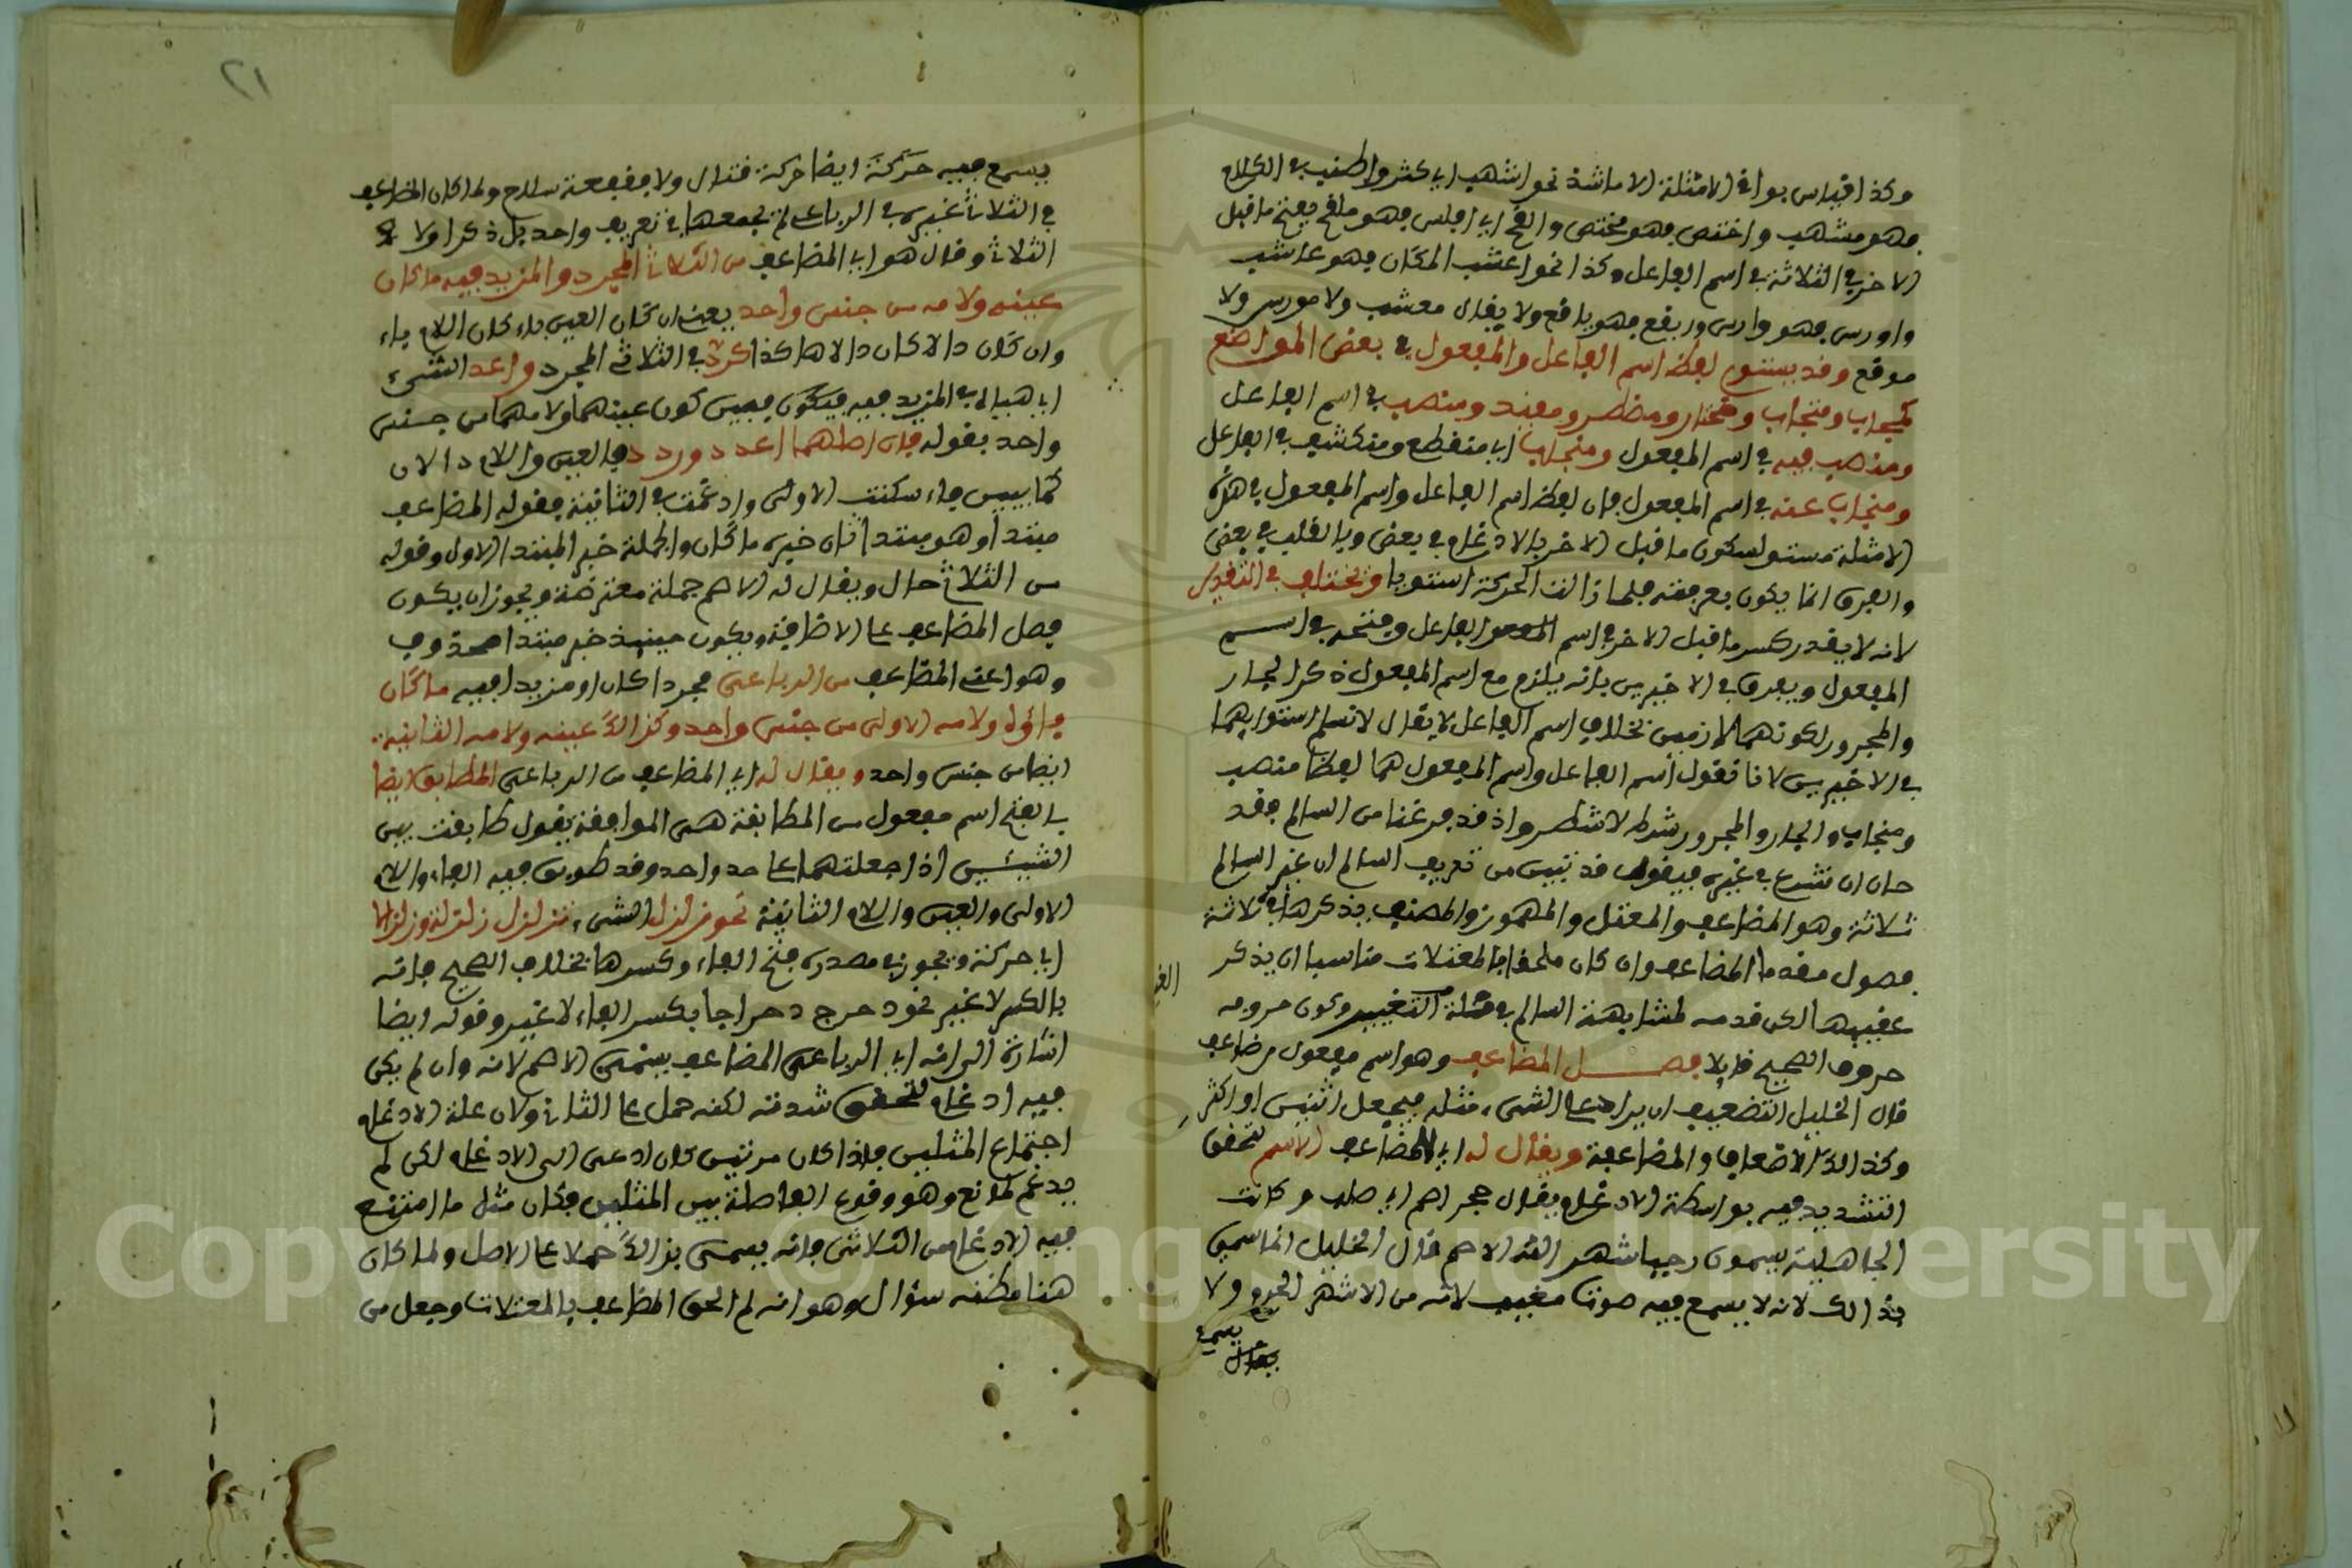 وكذا قياس بواقى الامثلة الا ما شذ نحو اشهب اى كثر واطنب فى الكلام
فهو مشهب واحتص فهو محتص والفج اى افلس فهو ملفج بفتح ما قبل
الاخر فى الثلاثة فى اسم الفاعل وكذا نحو اعشب المكان فهو عاشب
واورس فهو وارس وايفع فهو يافع ولا يقال معشب ولا مورس ولا
موفع وقد يستوى لفظ اسم الفاعل والمفعول فى بعض المواضع
كمحاب ومتحاب ومختار ومضطر ومعتد ومنصب فى اسم الفاعل
ومنصب فيه فى اسم المفعول ومنجاب اى منقطع ومنكشف فى الفاعل
ومنجاب عنه فى اسم المفعول فان لفظ اسم الفاعل واسم المفعول فى هذه
الامثلة مستو لسكون ما قبل الاخر بالادغام فى بعض وبالقلب فى بعض
والفرق انما يكون بحركته فلما زالت الحركة استويا ويختلف فى التقدير
لانه لا يقدر كسر ما قبل الاخر فى اسم الفاعل وفتحه فى اسم
المفعول ويفرق فى الاخيرين بانه يلزم مع اسم المفعول ذكر الجار
والمجرور لكونهما لازمين بخلاف اسم الفاعل لا يقال لا نسلم استوايهما
فى الاخيرين لانا نقول اسم الفاعل واسم المفعول هما لفظا منصب
ومنجاب والجار والمجرور شرط لا شطر واذ قد فرغنا من السالم فقد
حان ان نشرع فى غيره فيقول قد تبين من تعريف السالم ان غير السالم
ثلاثة وهو المضاعف والمعتل والمهموز والمصنف يذكرها فى ثلاثة
فصول مقدما المضاعف وان كان ملحقا بالمعتلات مناسبا ان يذكر
عقيبها لكن قدمه لمشابهة السالم فى قلة التغيير وكون حروفه
حروف الصحيح قايلا فصل المضاعف وهو اسم مفعول من ضاعف
قال الخليل التضعيف ان يزاد على الشىء مثله فيجعل اثنين او اكثر
وكذالك الاضعاف والمضاعفة ويقال له اى للمضاعف الاصم لتحقق
التشديد فيه بواسطة الادغام يقال حجر اصم اى صلب وكانت
الجاهلية يسمون رجبا شهر الله الاصم قال الخليل انما سمى
بذالك لانه لا يسمع فيه صوت مغيب لانه من الاشهر الحرم ولا
يسمع
يسمع فيه حركة ايضا حركة قتال ولا قعقعة سلاح ولما كان المضاعف
فى الثلاثى غيره فى الرباعى لم يجمعهما فى تعريف واحد بل ذكر اولا
الثلاثى وقال هو اى المضاعف من الثلاثى المجرد والمزيد فيه ما كان
عينه ولامه من جنس واحد يعنى ان كان العين ياء كان اللام ياء
وان كان دالا كان دالا هاكذا كرد فى الثلاثى المجرد واعد الشىء
اى هيأه فى المزيد فيه فيكون فبين كون عينهما ولامهما من جنس
واحد بقوله فان اصلهما اعدد وردد فالعين واللام دالان
كما يبين فاء سكنت الاولى وادغمت فى الثانية فقوله المضاعف
مبتدا وهو مبتدا ثان خبره ما كان والجملة خبر المبتدا الاول وقوله
من الثلاثى حال ويقال له الاصم جملة معترضة ويجوز ان يكون
فصل المضاعف على الاضافة ويكون حينيذ خبر مبتدا محذوف
وهو اعنى المضاعف من الرباعى مجردا كان او مزيدا فيه ما كان
فاؤه ولامه الاولى من جنس واحد وكذالك عينه ولامه الثانية
ايضا من جنس واحد ويقال له اى المضاعف من الرباعى المطابق ايضا
بالفتح اسم مفعول من المطابقة هى الموافقة يقول طابقت بين
الشيئين اذا جعلتهما على حد واحد وقد طوبق فيه الفاء واللام
الاولى والعين واللام الثانية نحو زلزل الشىء يزلزل زلزلة وزلزالا
اى حركة ويجوز فى مصدره فتح الفاء وكسرها بخلاف الصحيح فانه
بالكسر لا غير نحو دحرج دحراجا بكسر الفاء لا غير وقوله ايضا
اشارة الى انه اى الرباعى المضاعف يسمى الاصم لانه وان لم يكن
فيه ادغام لتحقق شدته لكنه حمل على الثلاثى ولان علة الادغام
اجتماع المثلين فاذا كان مرتين كان ادعى الى الادغام لكن لم
يدغم لمانع وهو وقوع الفاصلة بين المثلين فكان مثل ما امتنع
فيه الادغام من الثلاثى فانه يسمى بذالك حملا على الاصل ولما كان
هنا مظنة سؤال وهو انه لم الحق المضاعف بالمعتلات وجعل من
٢١
Copyright © King Saud University